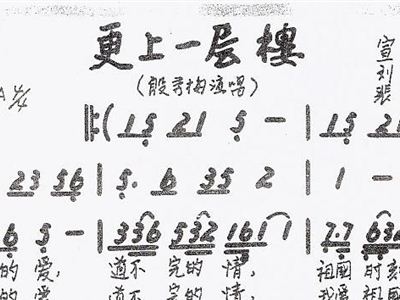 更上一层楼
(殷秀梅演唱)
宣
刘
1=A 4/4 ‖:( 15 21 5 — | 15 21
23 56 | 5. 6 35 2 | 1 —
6 5 — | 336 532 161 | 7.7 636
的 爱, 道不 完的 情, 祖国 时刻
的 爱, 道不 完的 情, 我爱 祖国